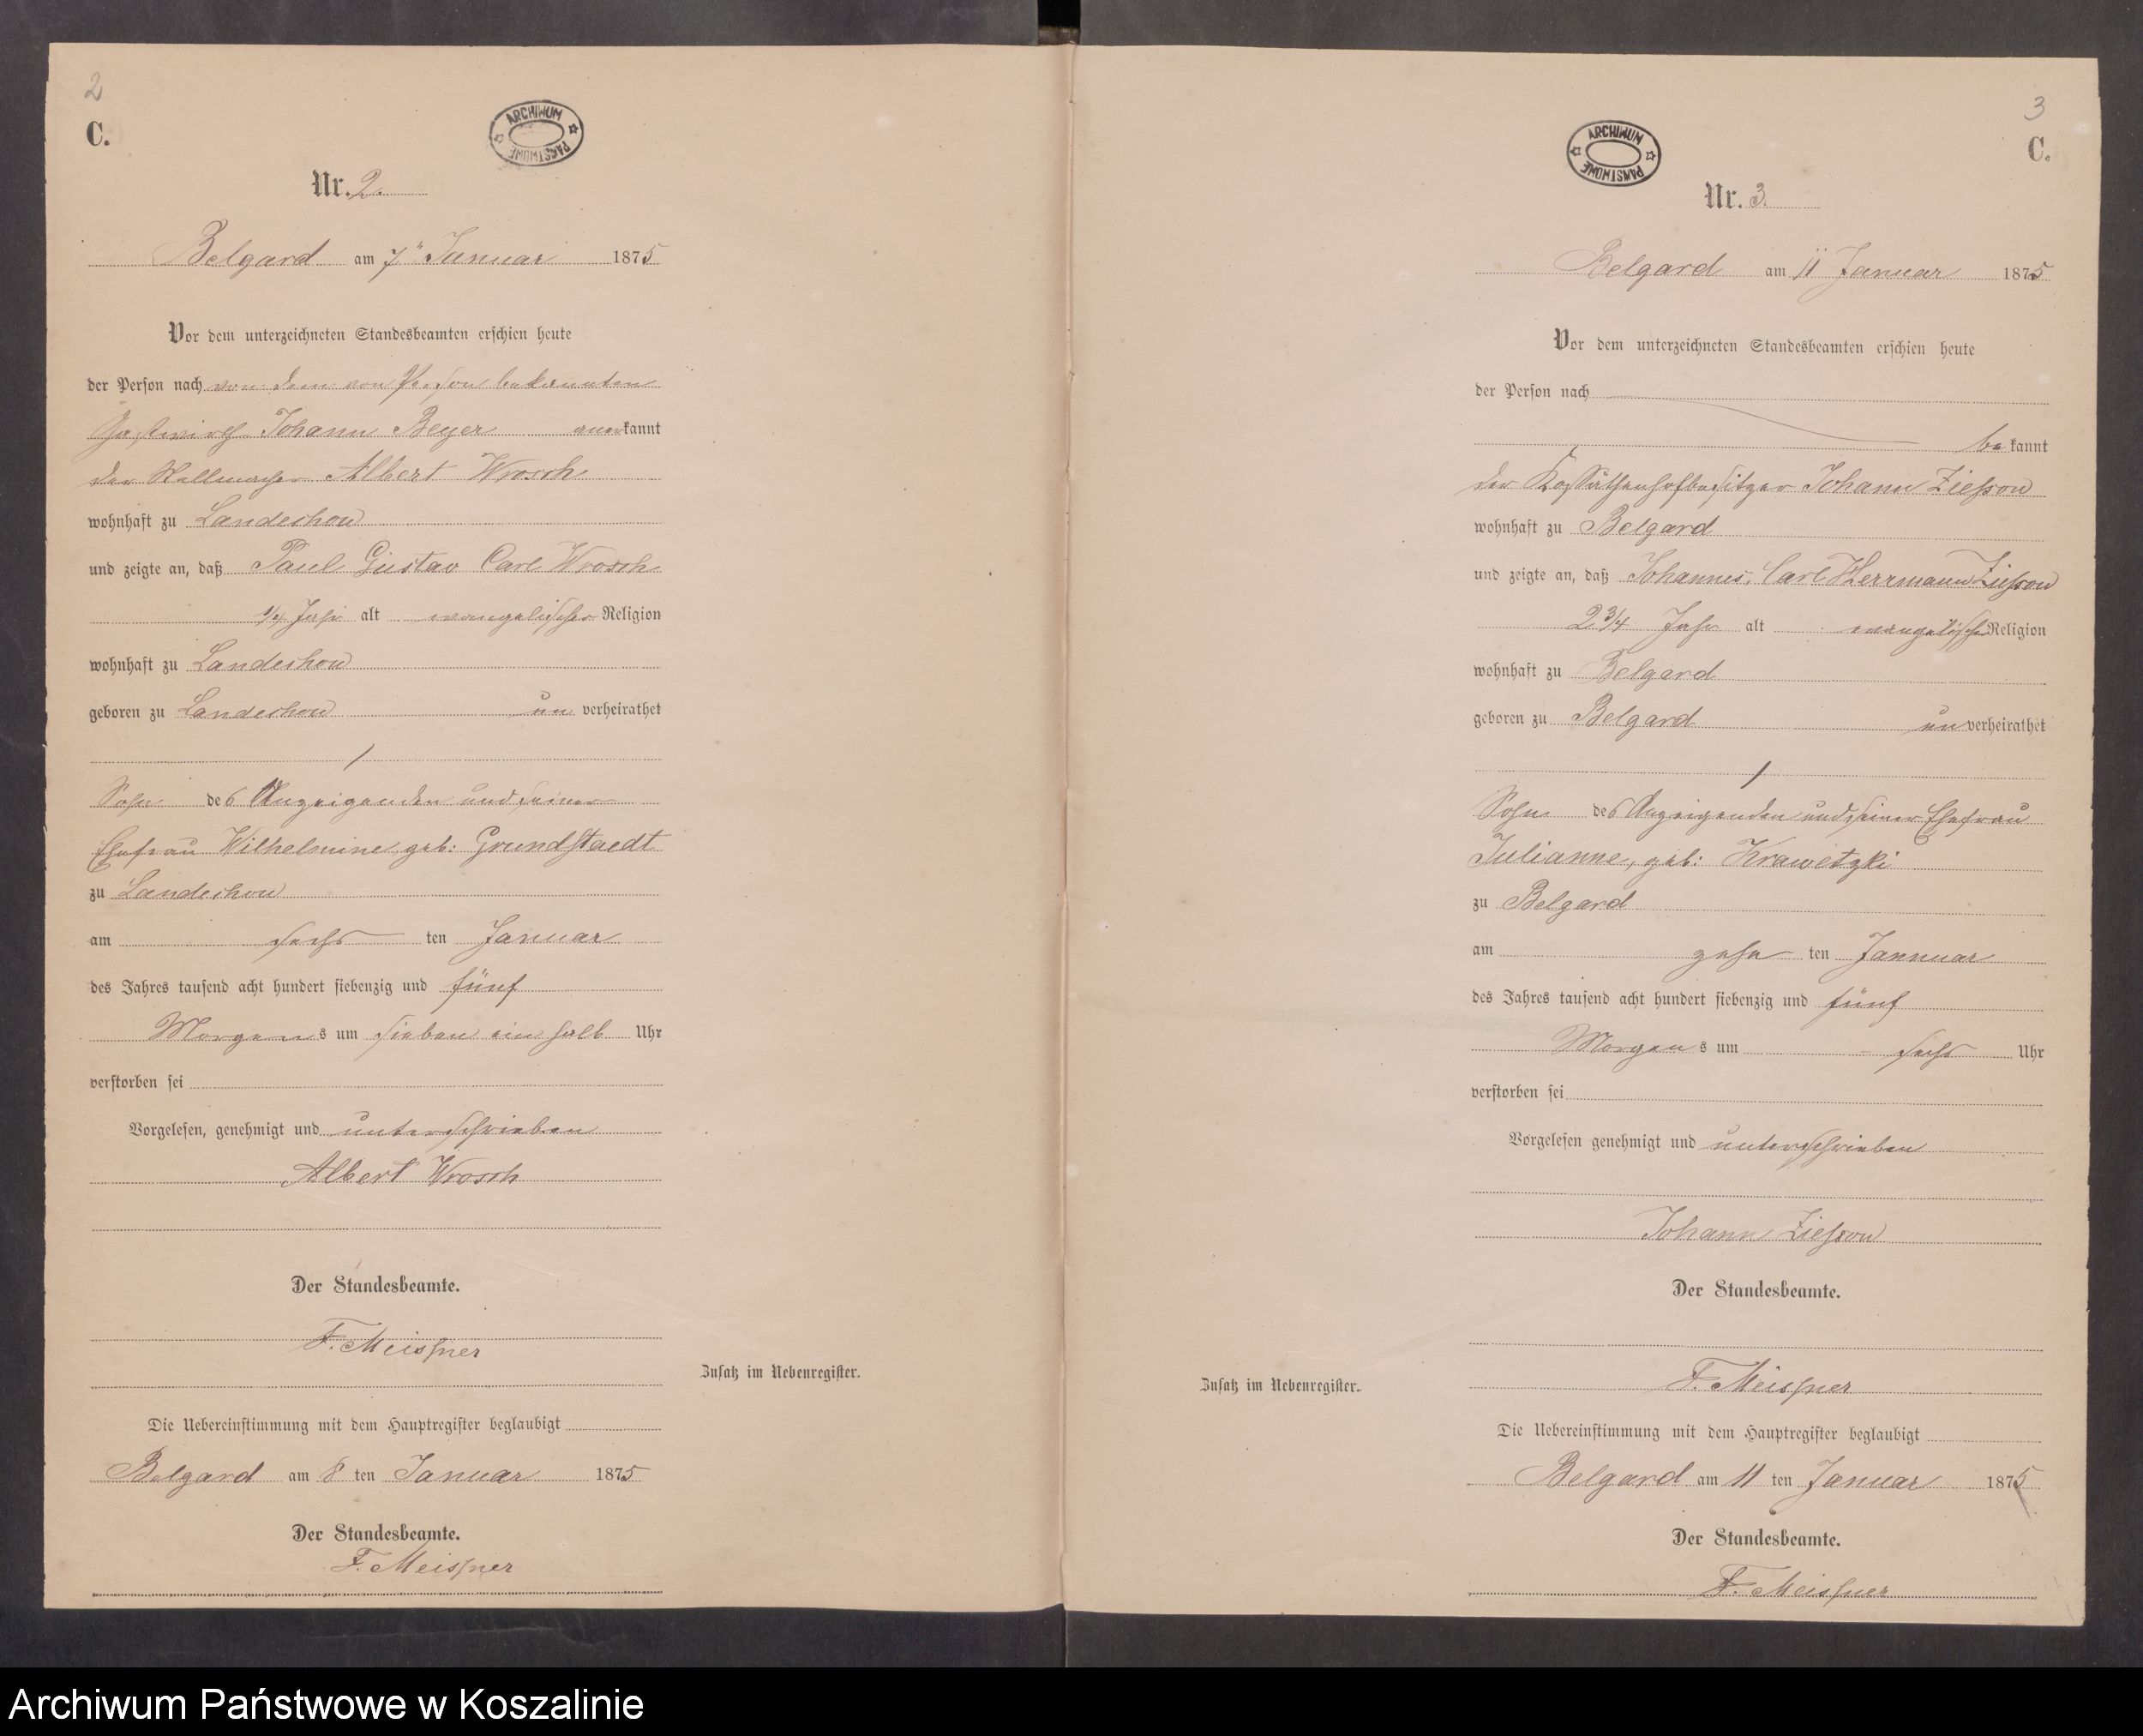 2
C.
ARCHIWUM PAŃSTWOWE
Nr. 2.
Belgard am 7" Januar 1875
Vor dem unterzeichneten Standesbeamten erschien heute
der Person nach von dem von Person bekannten
Gastwirth Johann Beyer anerkannt
der Stellmacher Albert Wrosch
wohnhaft zu Landechow
und zeigte an, daß Paul Gustav Carl Wrosch
1/4 Jahr alt evangelischer Religion
wohnhaft zu Landechow
geboren zu Landechow un verheirathet
/
Sohn des Anzeigenden und seiner
Ehefrau Wilhelmine, geb: Grundstaedt
zu Landechow
am sechs ten Januar
des Jahres tausend acht hundert siebenzig und fünf
Morgens um sieben ein halb Uhr
verstorben sei
Vorgelesen, genehmigt und unterschrieben
Albert Wrosch
Der Standesbeamte.
F. Meissner
Zusatz im Nebenregister.
Die Uebereinstimmung mit dem Hauptregister beglaubigt
Belgard am 8 ten Januar 1875
Der Standesbeamte.
F. Meissner
3
C.
ARCHIWUM PAŃSTWOWE
Nr. 3.
Belgard am 11 Januar 1875
Vor dem unterzeichneten Standesbeamten erschien heute
der Person nach
bekannt
der Kossäthenhofbesitzer Johann Ziesson
wohnhaft zu Belgard
und zeigte an, daß Johannes, Carl Herrmann Ziesson
2 3/4 Jahr alt evangelischer Religion
wohnhaft zu Belgard
geboren zu Belgard unverheirathet
/
Sohn des Anzeigenden und seiner Ehefrau
Julianne, geb: Krawetzki
zu Belgard
am zehn ten Jannuar
des Jahres tausend acht hundert siebenzig und fünf
Morgens um sechs Uhr
verstorben sei
Vorgelesen genehmigt und unterschrieben
Johann Ziesson
Der Standesbeamte.
F. Meissner
Zusatz im Nebenregister.
Die Uebereinstimmung mit dem Hauptregister beglaubigt
Belgard am 11 ten Januar 1875
Der Standesbeamte.
F. Meissner
Archiwum Państwowe w Koszalinie